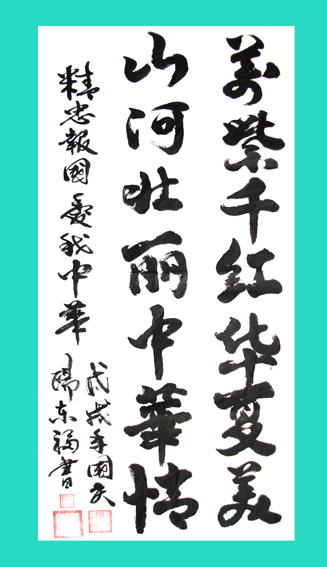 萬紫千红华夏美
山河壮丽中華情
精忠報國爱我中華
戊戌年國庆
东福書